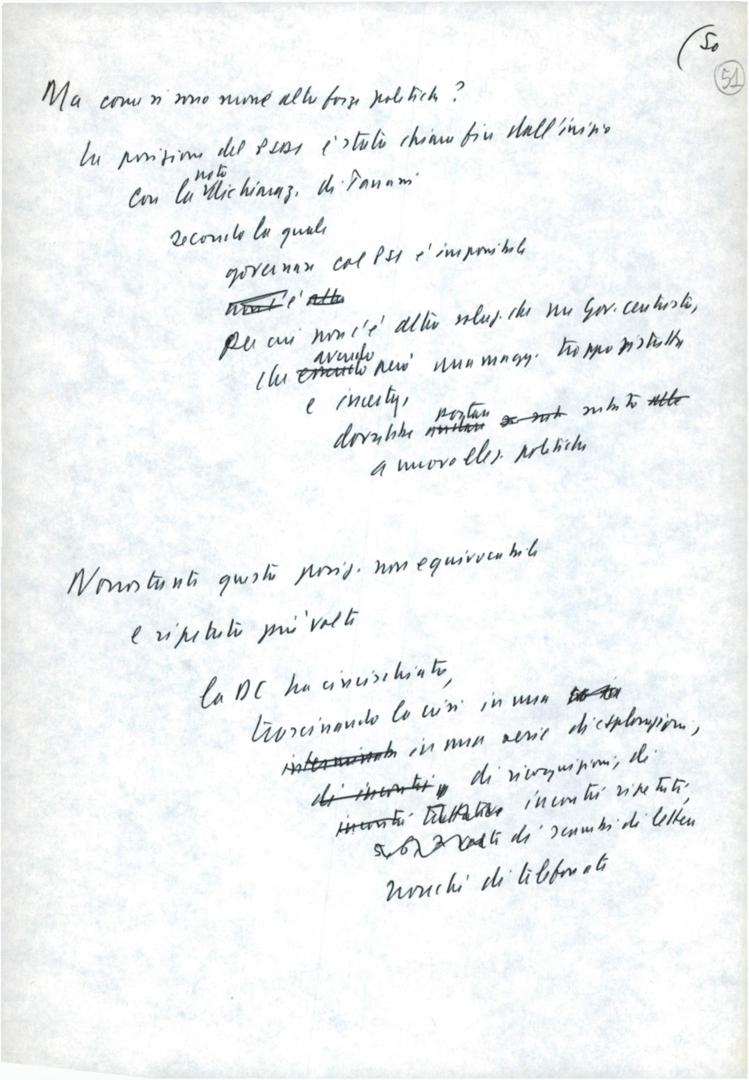 50
51
Ma come si sono mosse altre forze politiche?
La posizione del PSDI è stata chiara fin dall'inizio
con la nota dichiaraz. di Tanassi
secondo la quale
governare col PSI è impossibile
non c'è altra
per cui non c'è altra soluz. che un Gov. centrista,
che essendo avendo però una magg. troppo ristretta
e incerta,
dovrebbe portare subito alle
a nuove elez. politiche
Nonostante questa posiz. non equivocabile
e ripetuta più volte
la DC ha cincischiato,
trascinando la crisi in una
interminab in una serie di esplorazioni,
di incontri, di ricognizioni, di
incontri trattative incontri ripetuti,
5, 6, 7 volte di scambi di lettere
nonché di telefonate